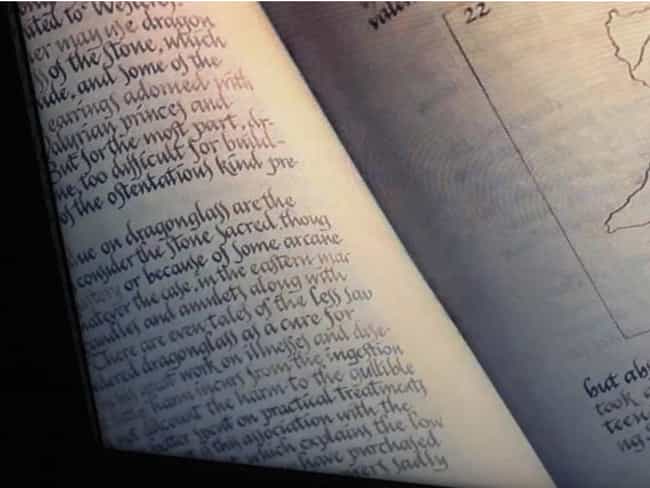 ited to Westeros.
er may use dragon
of the stone, which
ide, and some of the
earrings adorned with
alyrian princes and
But for the most part, dr-
ue, too difficult for build-
of the ostentatious kind pre-
ue on dragonglass are the
consider the stone sacred thoug
or because of some arcane
hatever the case, in the eastern mar
and amulets along with
There are even tales of the less sav
dered dragonglass as a cure for
work on illnesses and dise-
harm incurs from the ingestion
account the harm to the gullible
spent on practical treatments
this association with the
which explains the low
have purchased
ters sadly
22
but ab
took
teen
ng